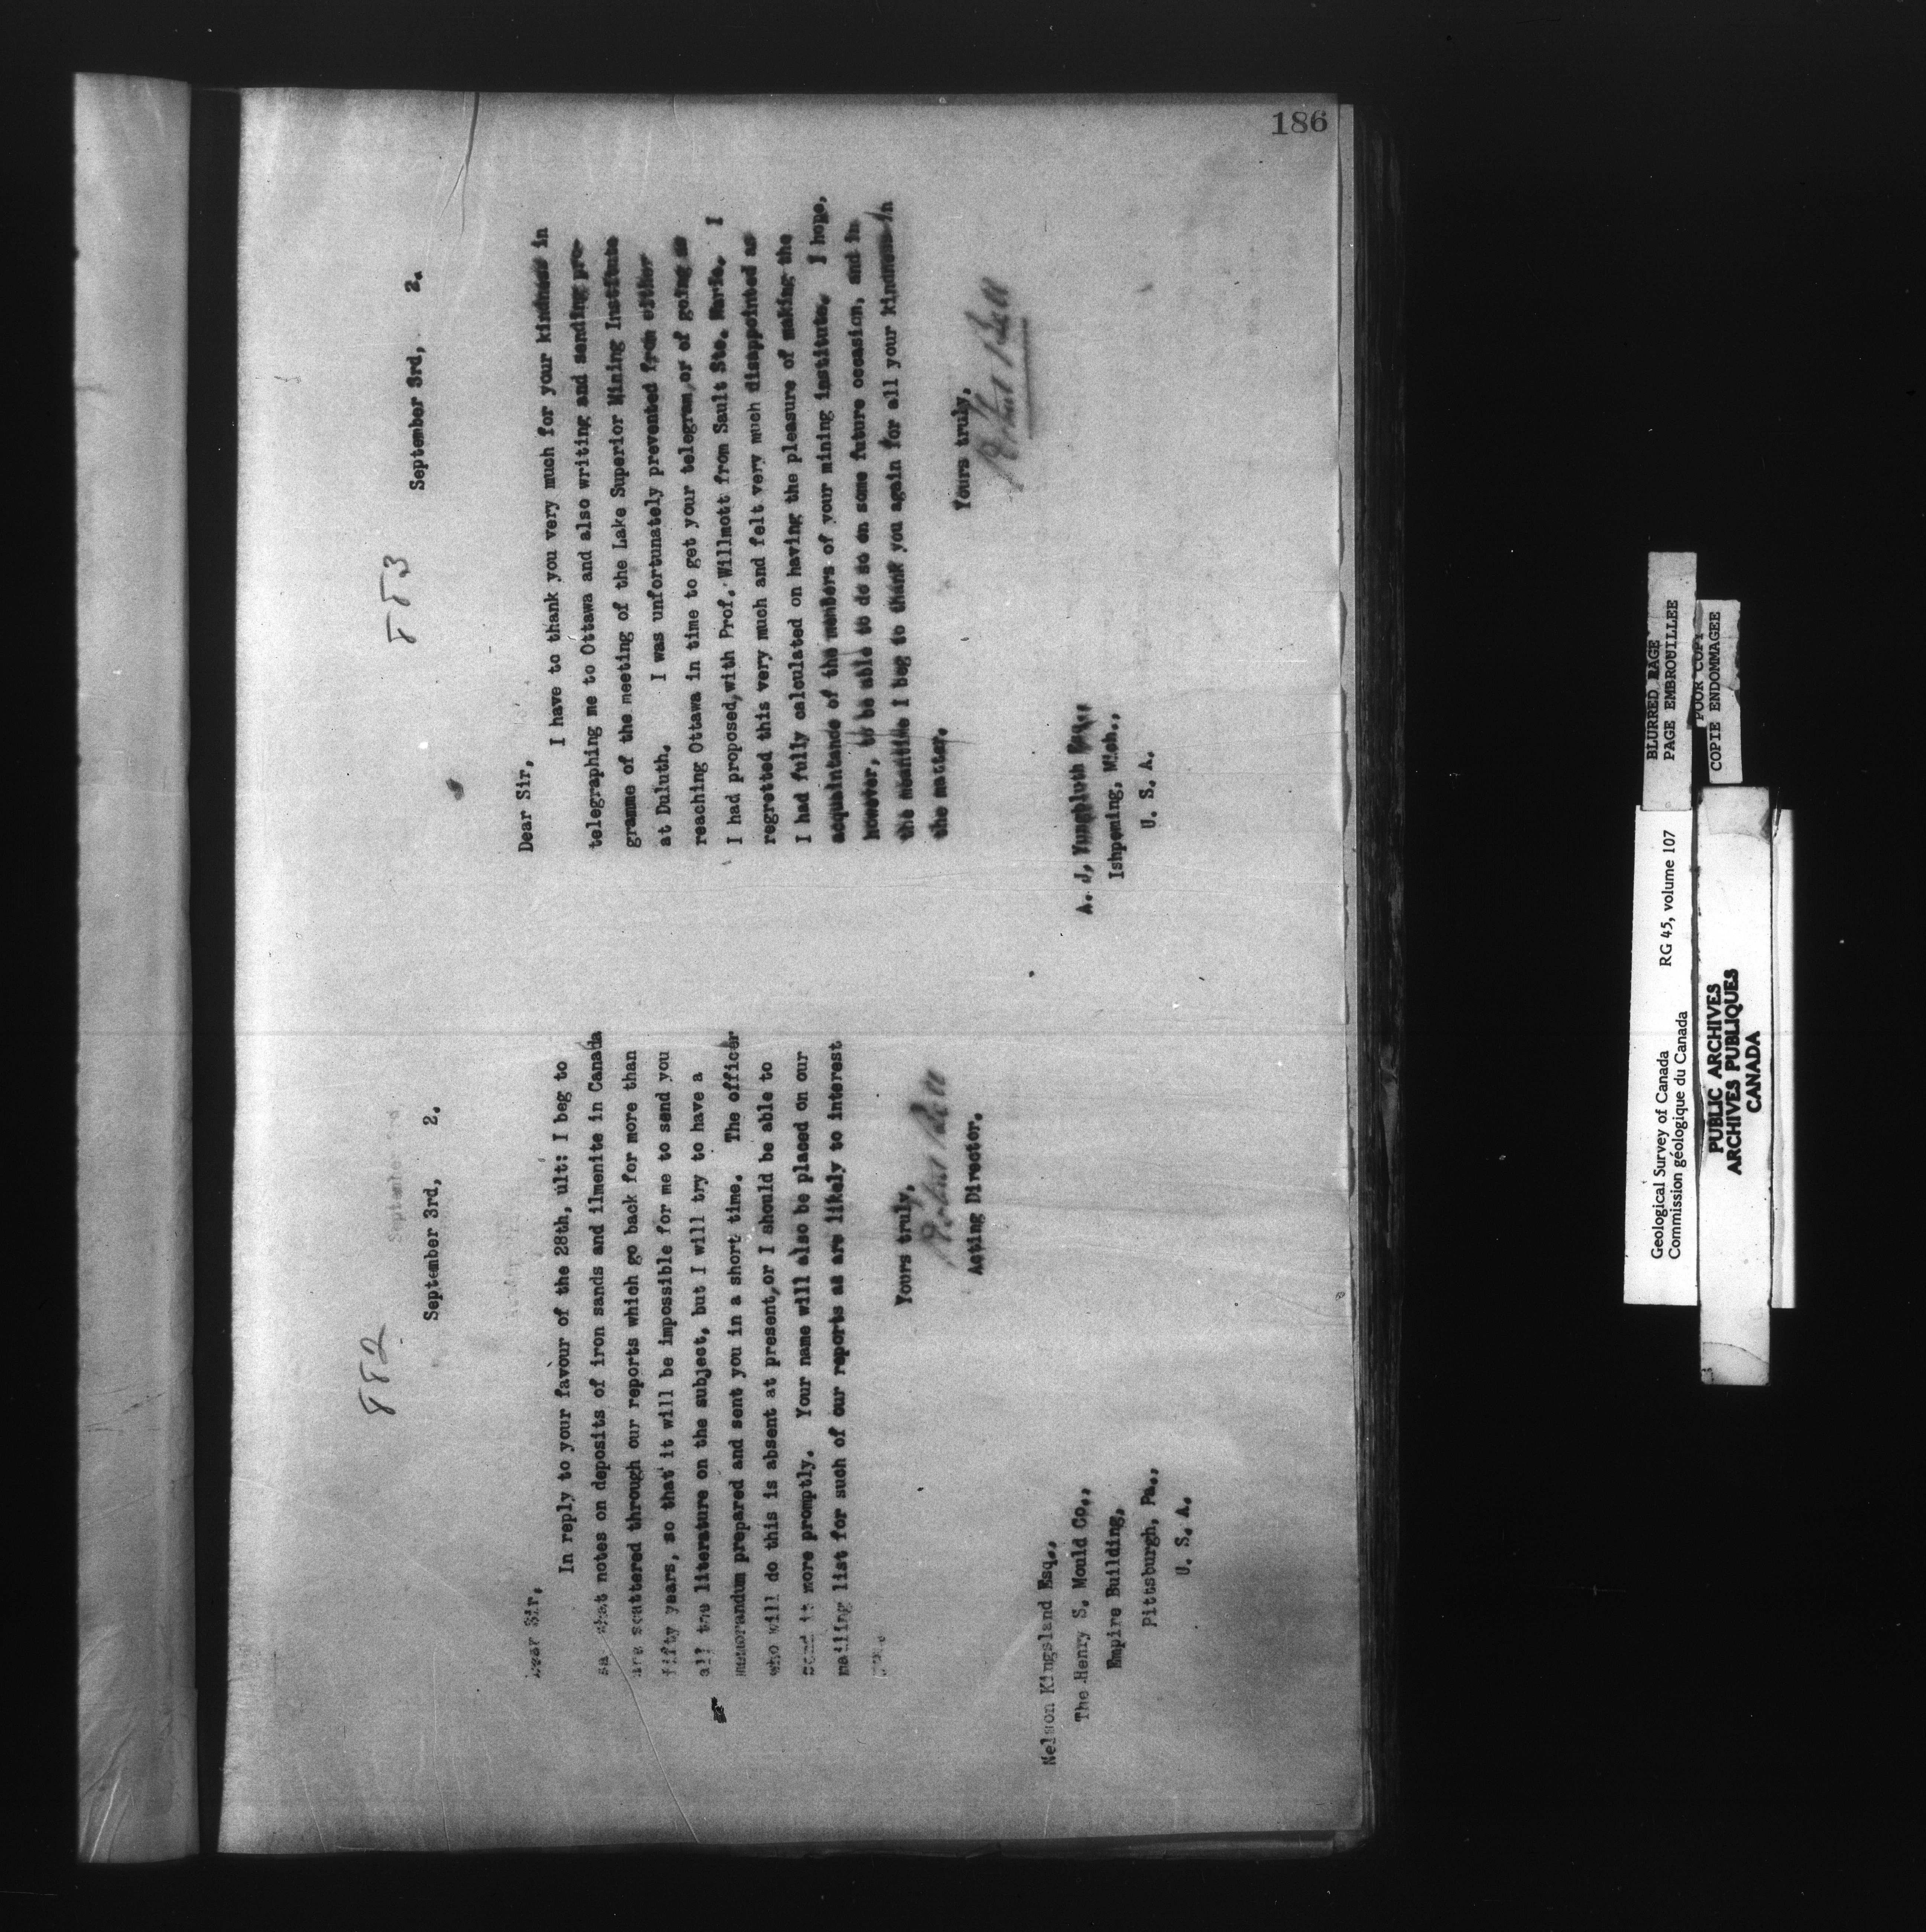 186
882
September 3rd, 2.
Dear Sir,
In reply to your favour of the 28th, ult: I beg to
say that notes on deposits of iron sands and ilmenite in Canada
are scattered through our reports which go back for more than
fifty years, so that it will be impossible for me to send you
all the literature on the subject, but I will try to have a
memorandum prepared and sent you in a short time. The officer
who will do this is absent at present, or I should be able to
send it more promptly. Your name will also be placed on our
mailing list for such of our reports as are likely to interest
Yours truly,
Robert Bell
Acting Director.
Nelson Kingsland Esq.,
The Henry S. Mould Co.,
Empire Building,
Pittsburgh, Pa.,
U. S. A.
883
September 3rd, 2.
Dear Sir,
I have to thank you very much for your kindness in
telegraphing me to Ottawa and also writing and sending pro-
gramme of the meeting of the Lake Superior Mining Institute
at Duluth. I was unfortunately prevented from either
reaching Ottawa in time to get your telegram, or of going as
I had proposed, with Prof. Willmott from Sault Ste. Marie. I
regretted this very much and felt very much disappointed as
I had fully calculated on having the pleasure of making the
acquaintance of the members of your mining institute. I hope,
however, to be able to do so on some future occasion, and in
the meantime I beg to thank you again for all your kindness in
the matter.
Yours truly,
Robert Bell
A. J. Yungbluth Esq.,
Ishpeming, Mich.,
U. S. A.
BLURRED PAGE
PAGE EMBROUILLEE
POOR COPY
COPIE ENDOMMAGEE
Geological Survey of Canada RG 45, volume 107
Commission géologique du Canada
PUBLIC ARCHIVES
ARCHIVES PUBLIQUES
CANADA